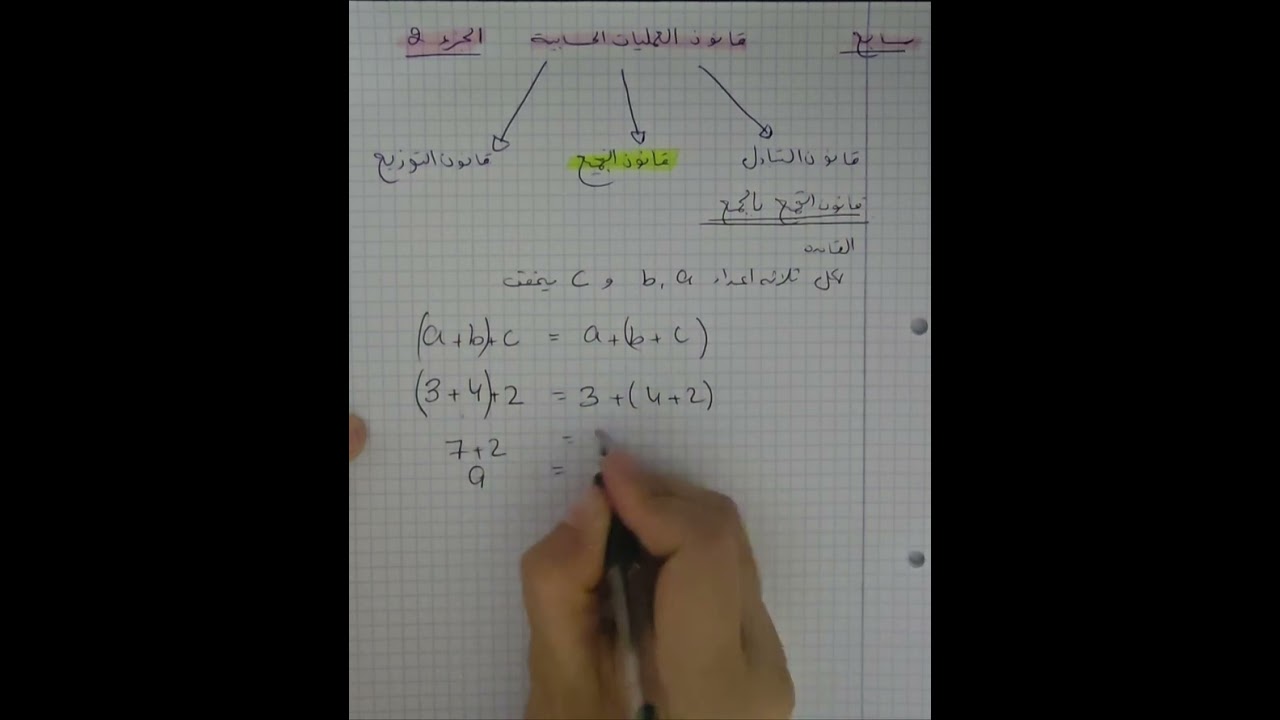 سابع قانون العمليات الحسابية الجزء 2
قانون التبادل قانون التجميع قانون التوزيع
قانون التجميع بالجمع
القاعدة
لكل ثلاثة اعداد a, b و c يتحقق
(a+b)+c = a+(b+c)
(3+4)+2 = 3+(4+2)
7+2 =
9 =